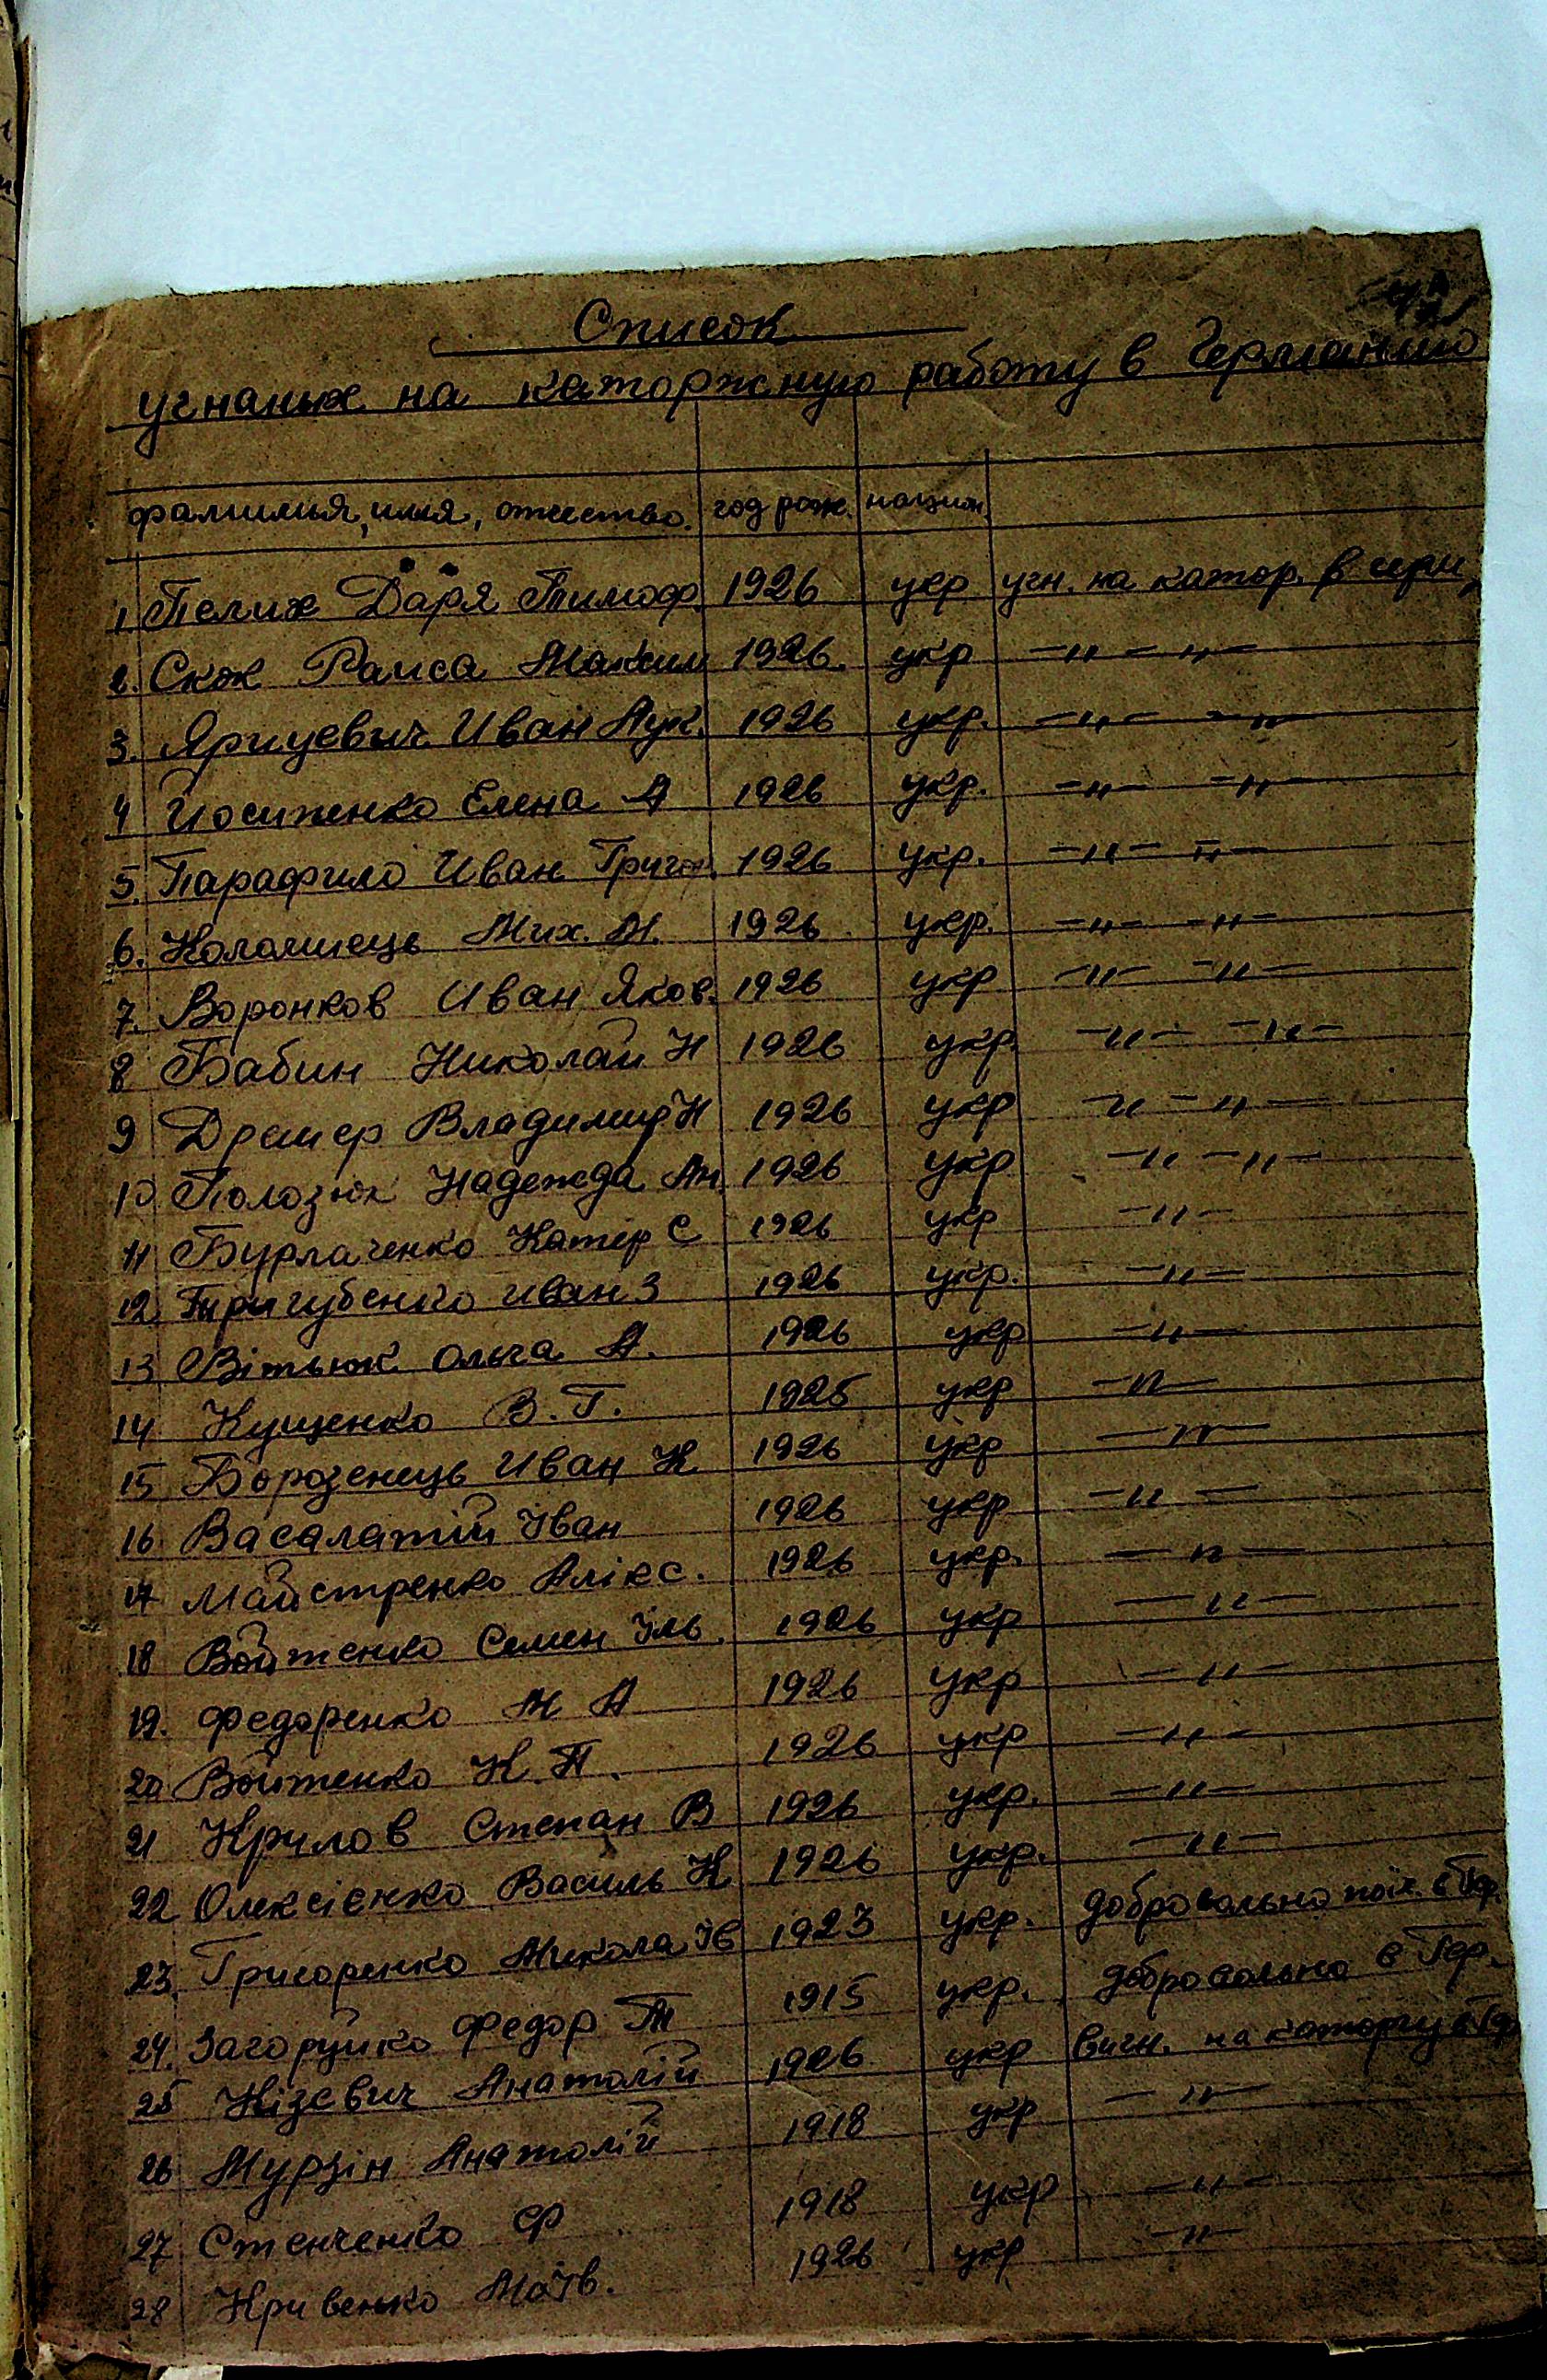 Список
угнаных на каторжную работу в Германию
фамилия, имя, отчество. год рож. национ.
1 Пелих Даря Тимоф. 1926 укр угн. на катор. в герм.
2. Скок Раиса Максим 1926. укр —"— —"—
3. Ярицевич Иван Лук. 1926 укр. —"— —"—
4 Иосипенко Елена А 1926 укр. —"— —"—
5. Парафило Иван Григ. 1926 укр. —"— —"—
6. Коломиець Мих. М. 1926 укр. —"— —"—
7. Воронков Иван Яков. 1926 укр —"— —"—
8 Бабин Николай Н 1926 укр. —"— —"—
9 Дремер Владимир Н 1926 укр —"— —"—
10 Полозюк Надежда Ан. 1926 укр —"— —"—
11 Бурлаченко Катер С 1926 укр —"—
12. Иван З 1926 укр. —"—
13 Вітьюк Ольга А. 1926 укр —"—
14 Куценко В. Г. 1926 укр —"—
15 Борозенець Иван К 1926 укр —"—
16 Васалатій Іван 1926 укр —"—
17 Майстренко Алікс. 1926 укр. —"—
18 Войтенко Семен Іль. 1926 укр —"—
19. Федоренко М А 1926 укр —"—
20 Войтенко К. П. 1926 укр —"—
21 Крилов Степан В 1926 укр. —"—
22 Олексієнко Василь К 1926 укр. —"—
23. Григоренко Микола Ів 1923 укр. добровольно поїх. в Гер.
24. Загоруйко Федор Т 1915 укр. добровольно в Гер.
25 Кізевич Анатолій 1926 укр вигн. на каторгу в Гер
26 Мурзін Анатолій 1918 укр —"—
27 Стенченко Ф 1918 укр —"—
28 Кривенко Ів. 1926 укр —"—